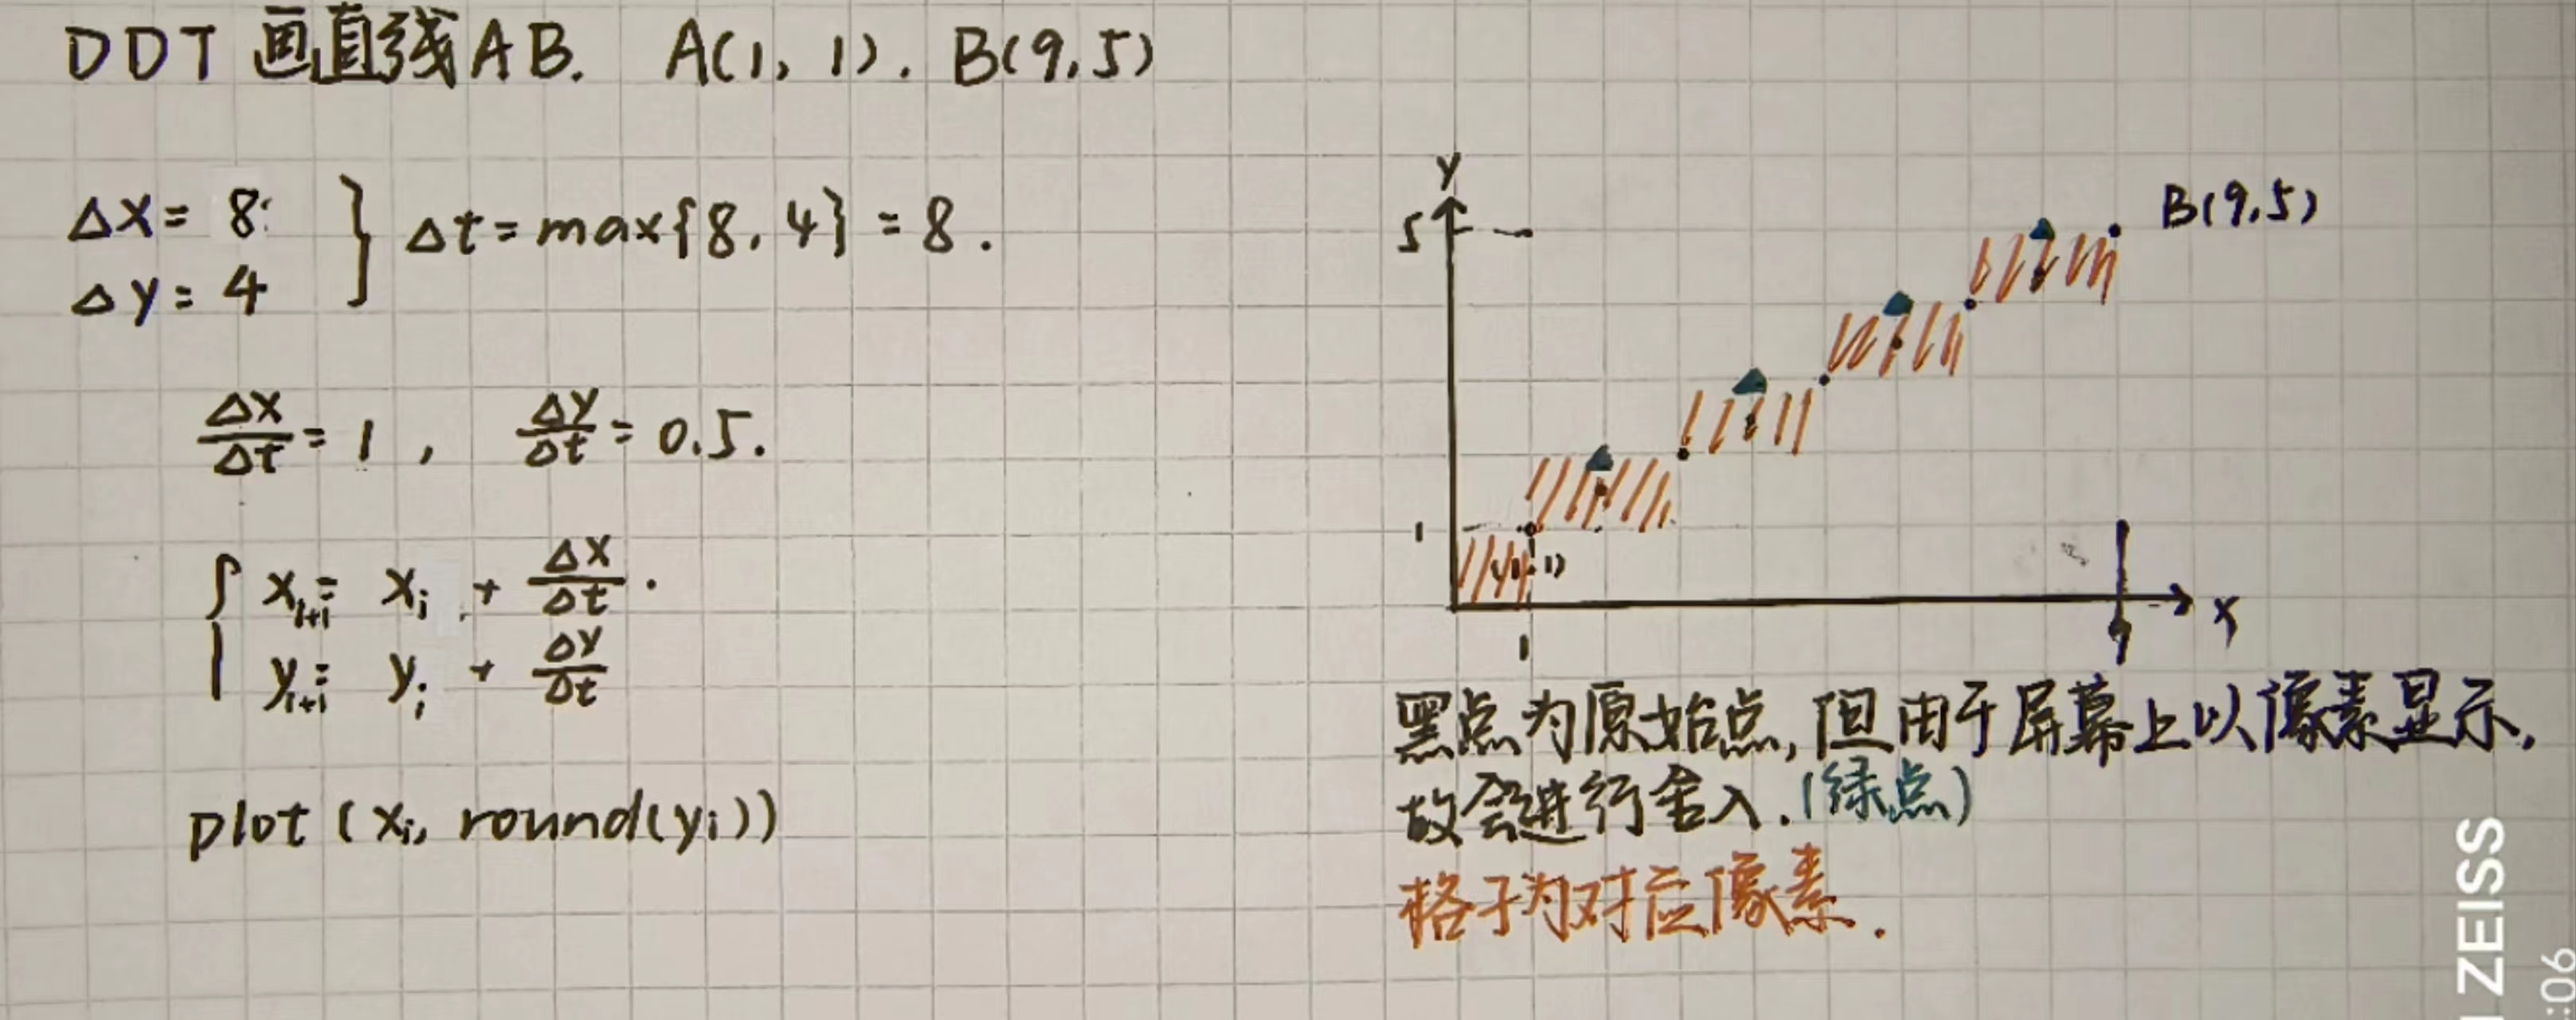 DDT 画直线AB. A(1, 1). B(9,5)
Δx = 8
Δy = 4
} Δt = max{8, 4} = 8.
Δx/Δt = 1, Δy/Δt = 0.5.
{ x_{i+1} = x_i + Δx/Δt.
y_{i+1} = y_i + Δy/Δt
plot (x_i, round(y_i))
y
5
B(9,5)
1
(1,1)
1
9
x
黑点为原始点,但由于屏幕上以像素显示,
故会进行舍入.(绿点)
格子为对应像素.
ZEISS
:06